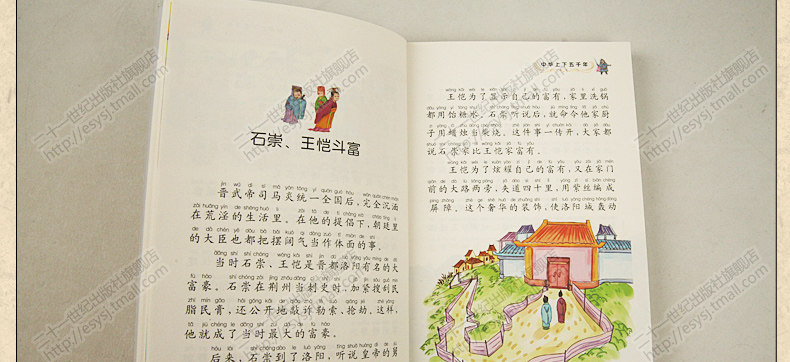 石崇、王恺斗富
晋武帝司马炎统一全国后，完全沉湎
在荒淫的生活里。在他的提倡下，朝廷里
的大臣也都把摆阔气当作体面的事。
当时石崇、王恺是晋都洛阳有名的大
富豪。石崇在荆州当刺史时，加紧搜刮民
脂民膏，还公开地敲诈勒索、抢劫。这样，
他就成了当时最大的富豪。
后来，石崇到了洛阳，听说皇帝的舅
中华上下五千年
王恺为了显示自己的富有，家里洗锅
都用饴糖水。石崇听说后，就命令他家厨
子用蜡烛当柴烧。这件事一传开，大家都
说石崇家比王恺家富有。
王恺为了炫耀自己的富有，又在家门
前的大路两旁，夹道四十里，用紫丝编成
屏障。这个奢华的装饰，使洛阳城轰动
二十一世纪出版社旗舰店
http://esysj.tmall.com